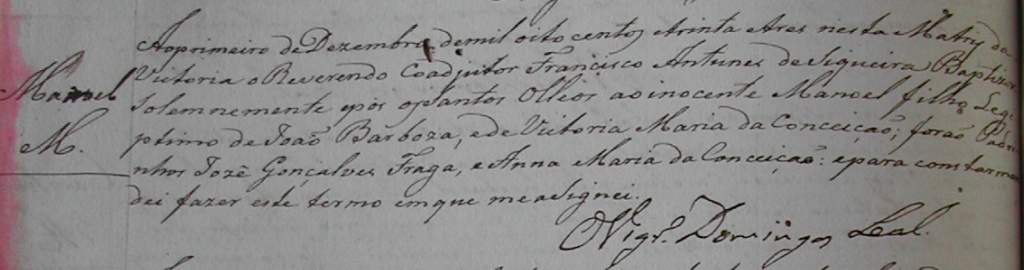 Manoel
M.
Aoprimeiro de Dezembro demil oito centos etrinta etres nesta Matriz da
Victoria o Reverendo Coadjutor Francisco Antunes de Siqueira Baptizou
Solemnemente epôs osSantos Olleos aoinocente Manoel filho Legi
ptimo de João Barboza, ede Victoria Maria da Conceiçaõ; foraõ Padri
nhos Jozé Gonçalves Fraga, e Anna Maria da Conceiçaõ: epara constar man
dei fazer este termo emque meaSignei.
O Vigr.º Domingos Leal.